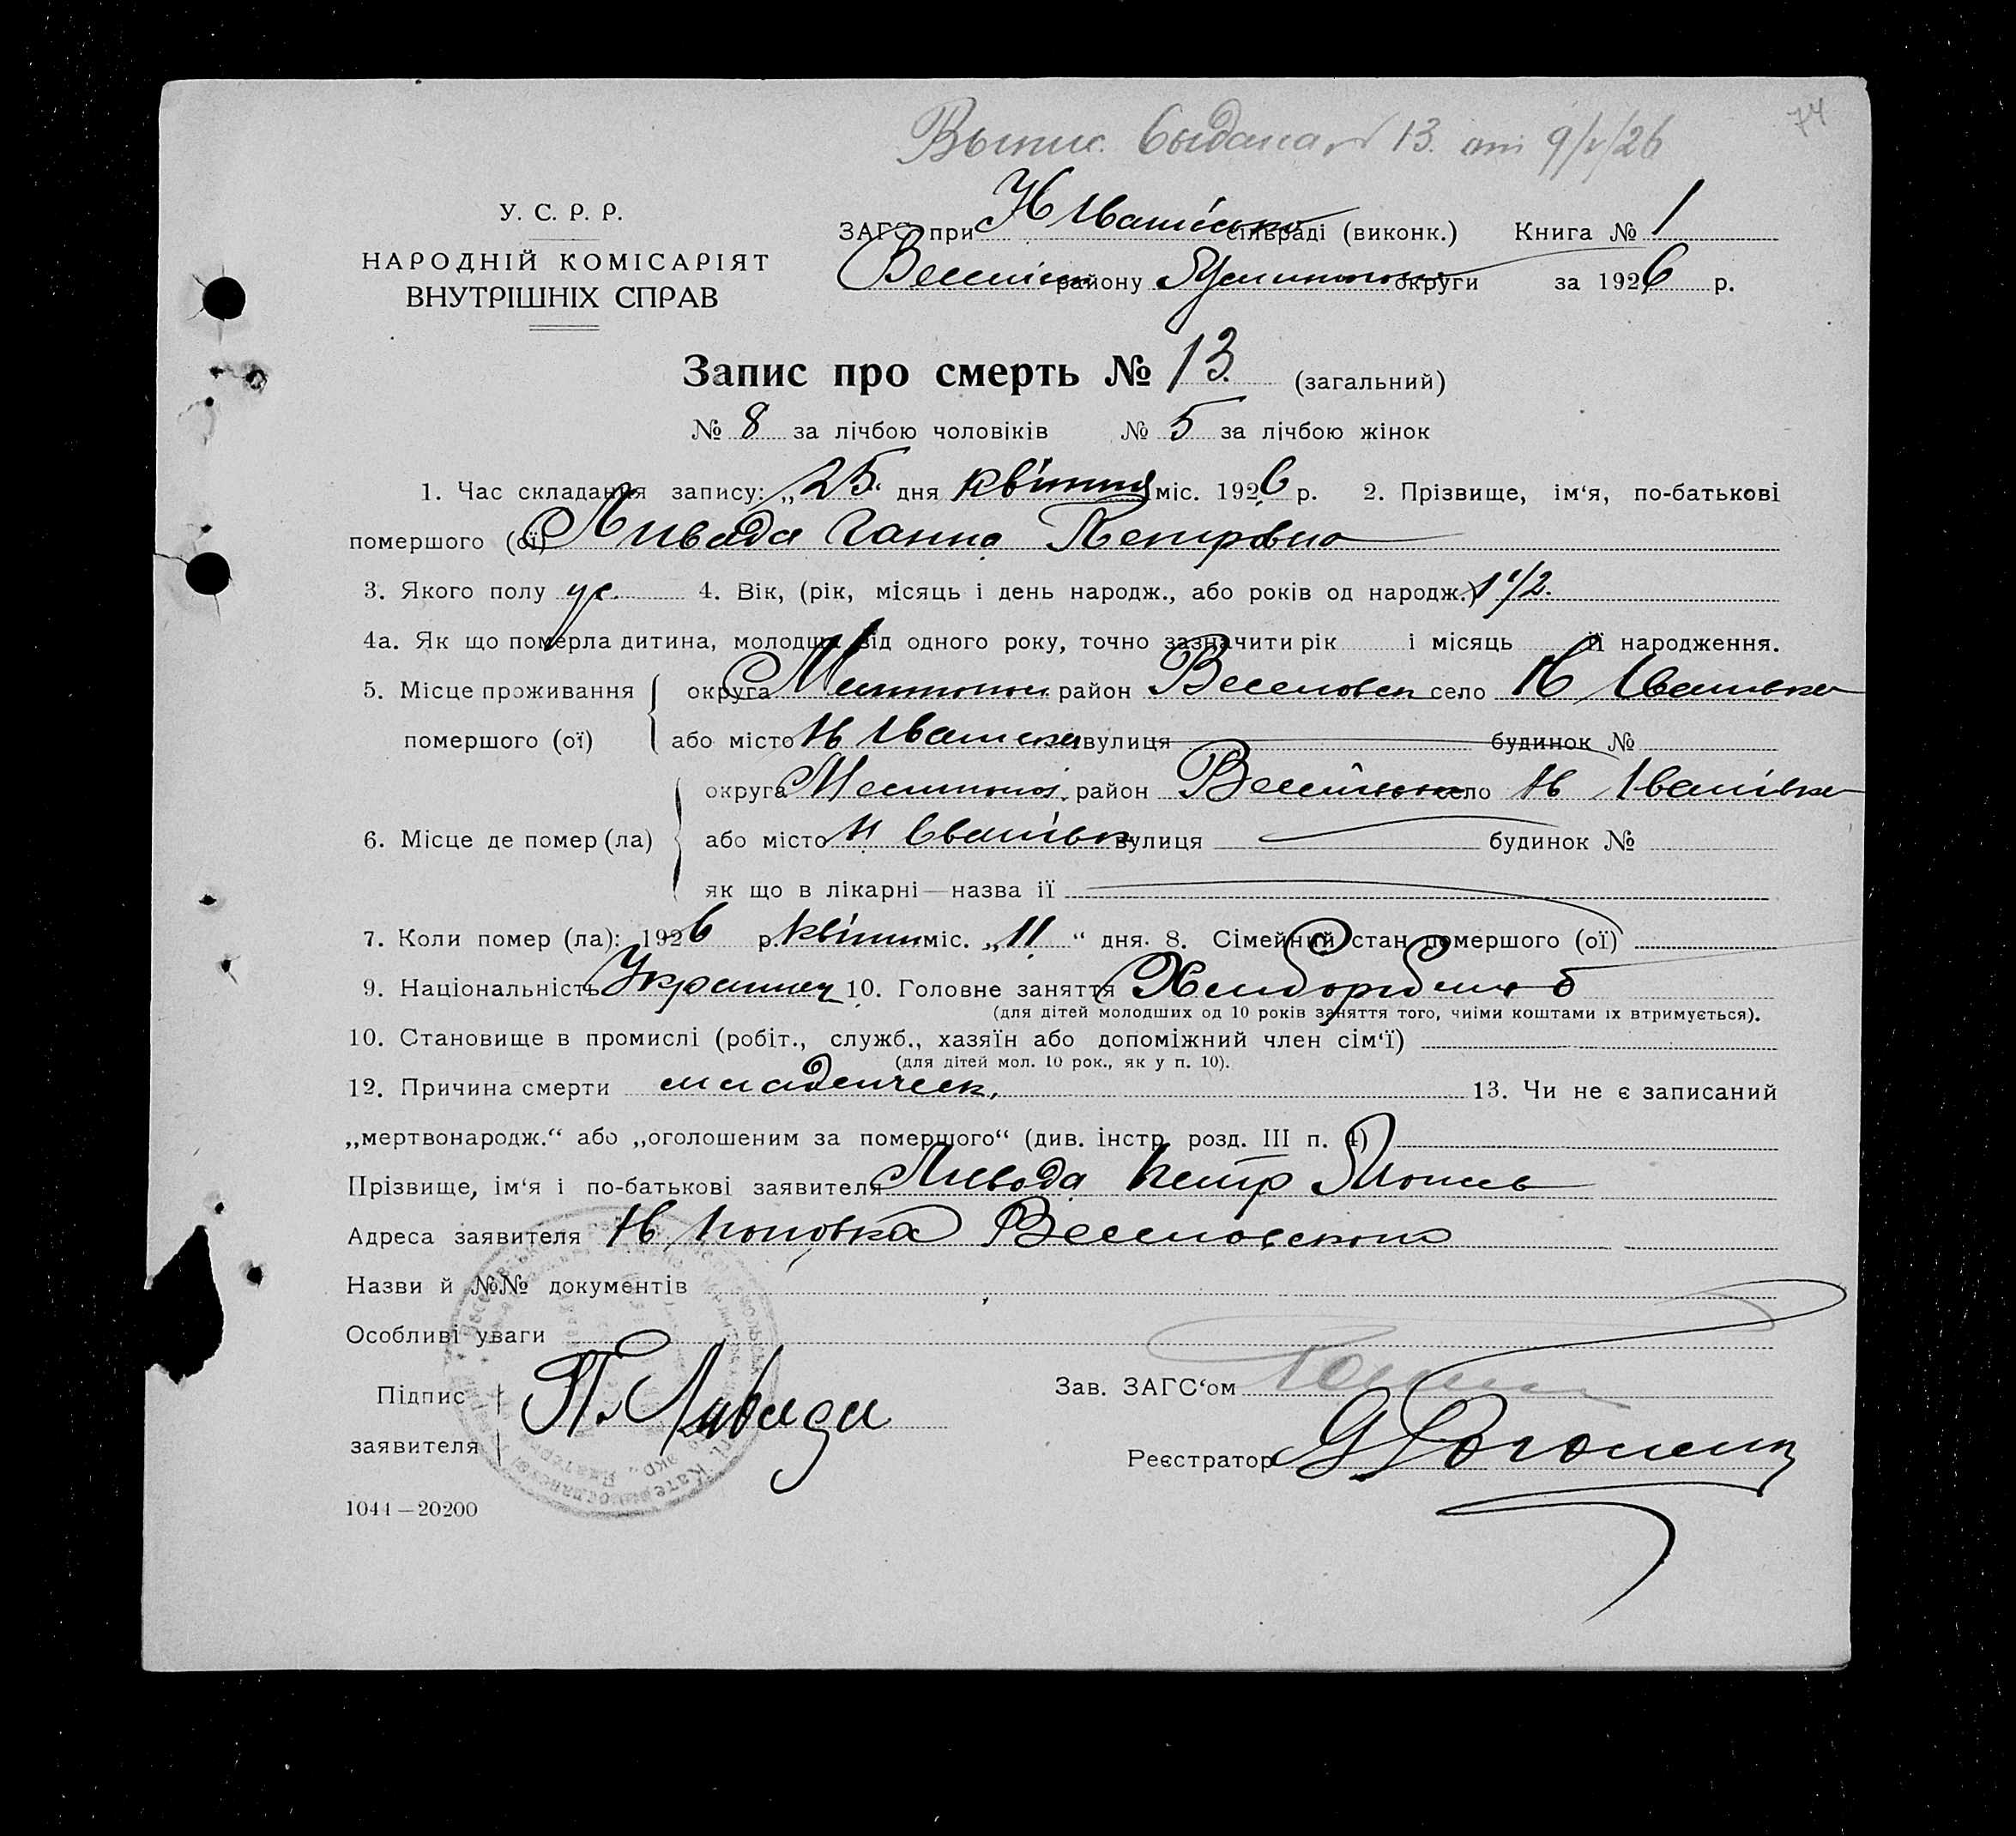 Выпис. выдана № 13. от 9/V/26
74
У. С. Р. Р.
НАРОДНІЙ КОМІСАРІЯТ
ВНУТРІШНІХ СПРАВ
ЗАГС при Н Иванівко сільраді (виконк.) Книга № 1
району округи за 1926 р.
Запис про смерть № 13. (загальний)
№ 8 за лічбою чоловіків № 5 за лічбою жінок
1. Час складання запису: „25“ дня квітня міс. 1926 р. 2. Прізвище, ім‘я, по-батькові
помершого (ої) Ливада Ганна Петровна
3. Якого полу ж. 4. Вік, (рік, місяць і день народж., або років од народж.) 1 1/2.
4а. Як що померла дитина, молодша від одного року, точно зазначити рік і місяць її народження.
5. Місце проживання округа район Веселовск село Н Иванівка
помершого (ої) або місто Н вулиця будинок №
округа район село Н Іванівка
6. Місце де помер (ла) або місто Н вулиця будинок №
як що в лікарні — назва ії
7. Коли помер (ла): 1926 р. квітня міс. „11“ дня. 8. Сімейний стан помершого (ої)
9. Національність Украинец 10. Головне заняття Хлибороб
(для дітей молодших од 10 років заняття того, чиіми коштами іх втримується).
10. Становище в промислі (робіт., служб., хазяїн або допоміжний член сім‘ї)
(для дітей мол. 10 рок., як у п. 10).
12. Причина смерти младенческ. 13. Чи не є записаний
„мертвонародж.“ або „оголошеним за помершого“ (див. інстр. розд. III п. 4)
Прізвище, ім‘я і по-батькові заявителя Ливада Петр
Адреса заявителя Н
Назви й №№ документів
Особливі уваги
Підпис П. Ливада
заявителя
Зав. ЗАГС‘ом
Реєстратор
1044—20200